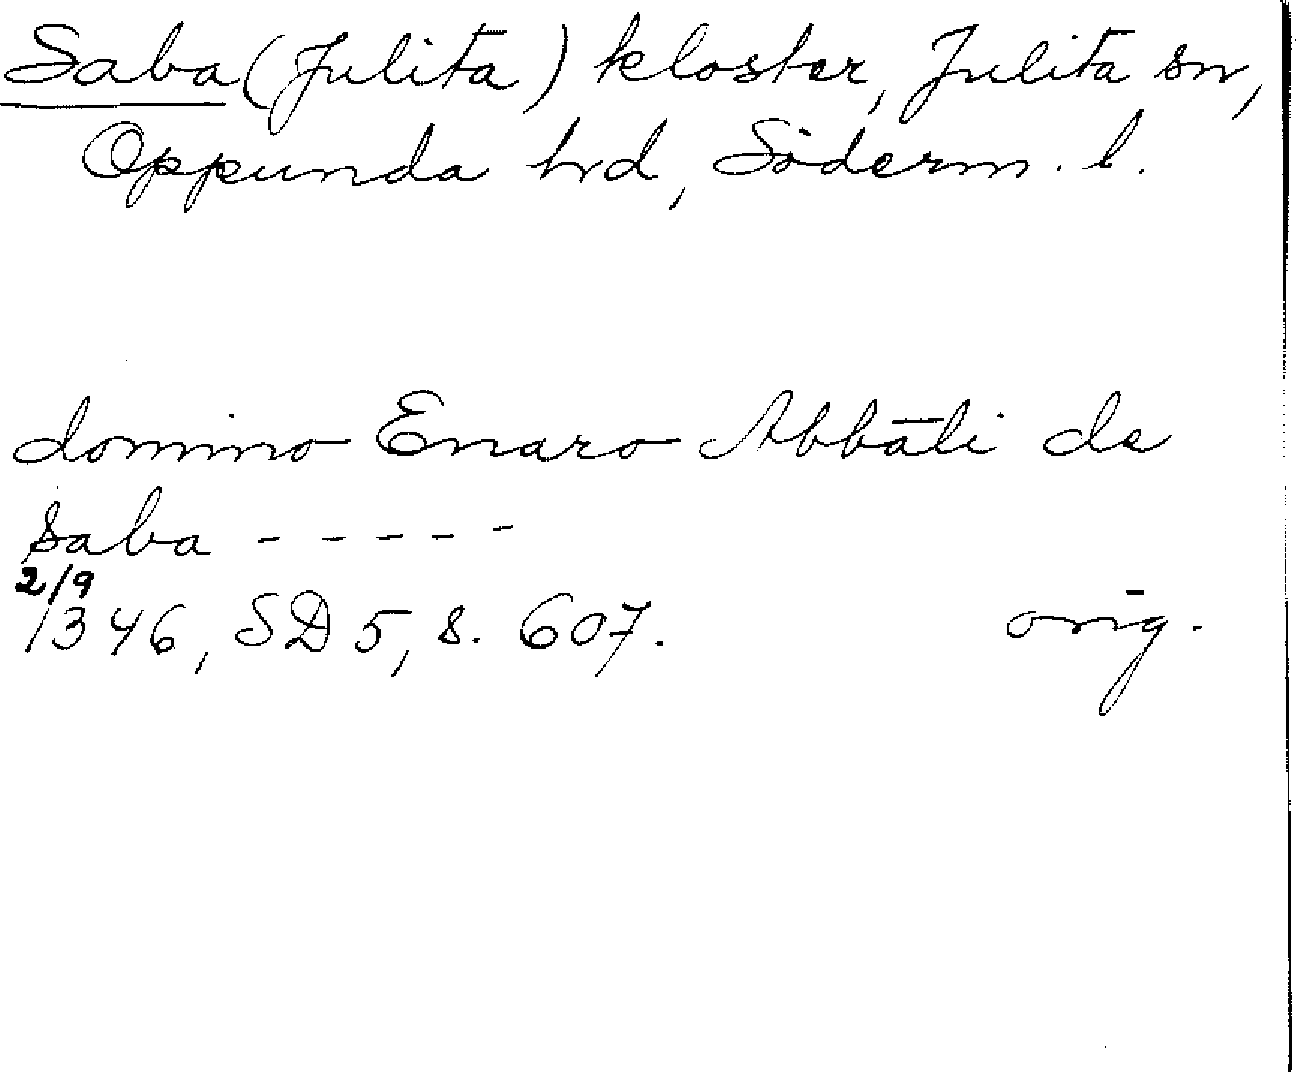 Saba (Julita) kloster, Julita sn,
Oppunda hd, Söderm. l.
domino Enaro Abbati de
saba - - - - -
2/9
1346, SD 5, s. 607. orig.